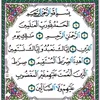 بسم الله الرحمن الرحيم
الحمد لله رب العلمين
الرحمن الرحيم ملك يوم
الدين إياك نعبد وإياك نستعين
اهدنا الصراط المستقيم صراط الذين
أنعمت عليهم غير المغضوب
عليهم ولا الضالين